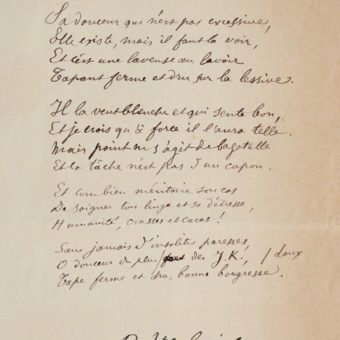 Sa douceur qui n'est pas excessive,
Elle existe, mais il faut la voir,
Et c'est une laveuse au lavoir
Tapant ferme et dru sur la lessive.
Il la veut blanche et qui sente bon,
Et je crois qu'à force il l'aura telle.
Mais point ne s'agit de bagatelle
Et la tâche n'est pas d'un capon.
Et combien méritoire son cas
De soigner ton linge et sa détresse,
Humanité, crasses et cacas !
Sans jamais d'insolite paresse,
O douceur du plus des J.K., / doux
Tape ferme et dru, bonne bougresse.